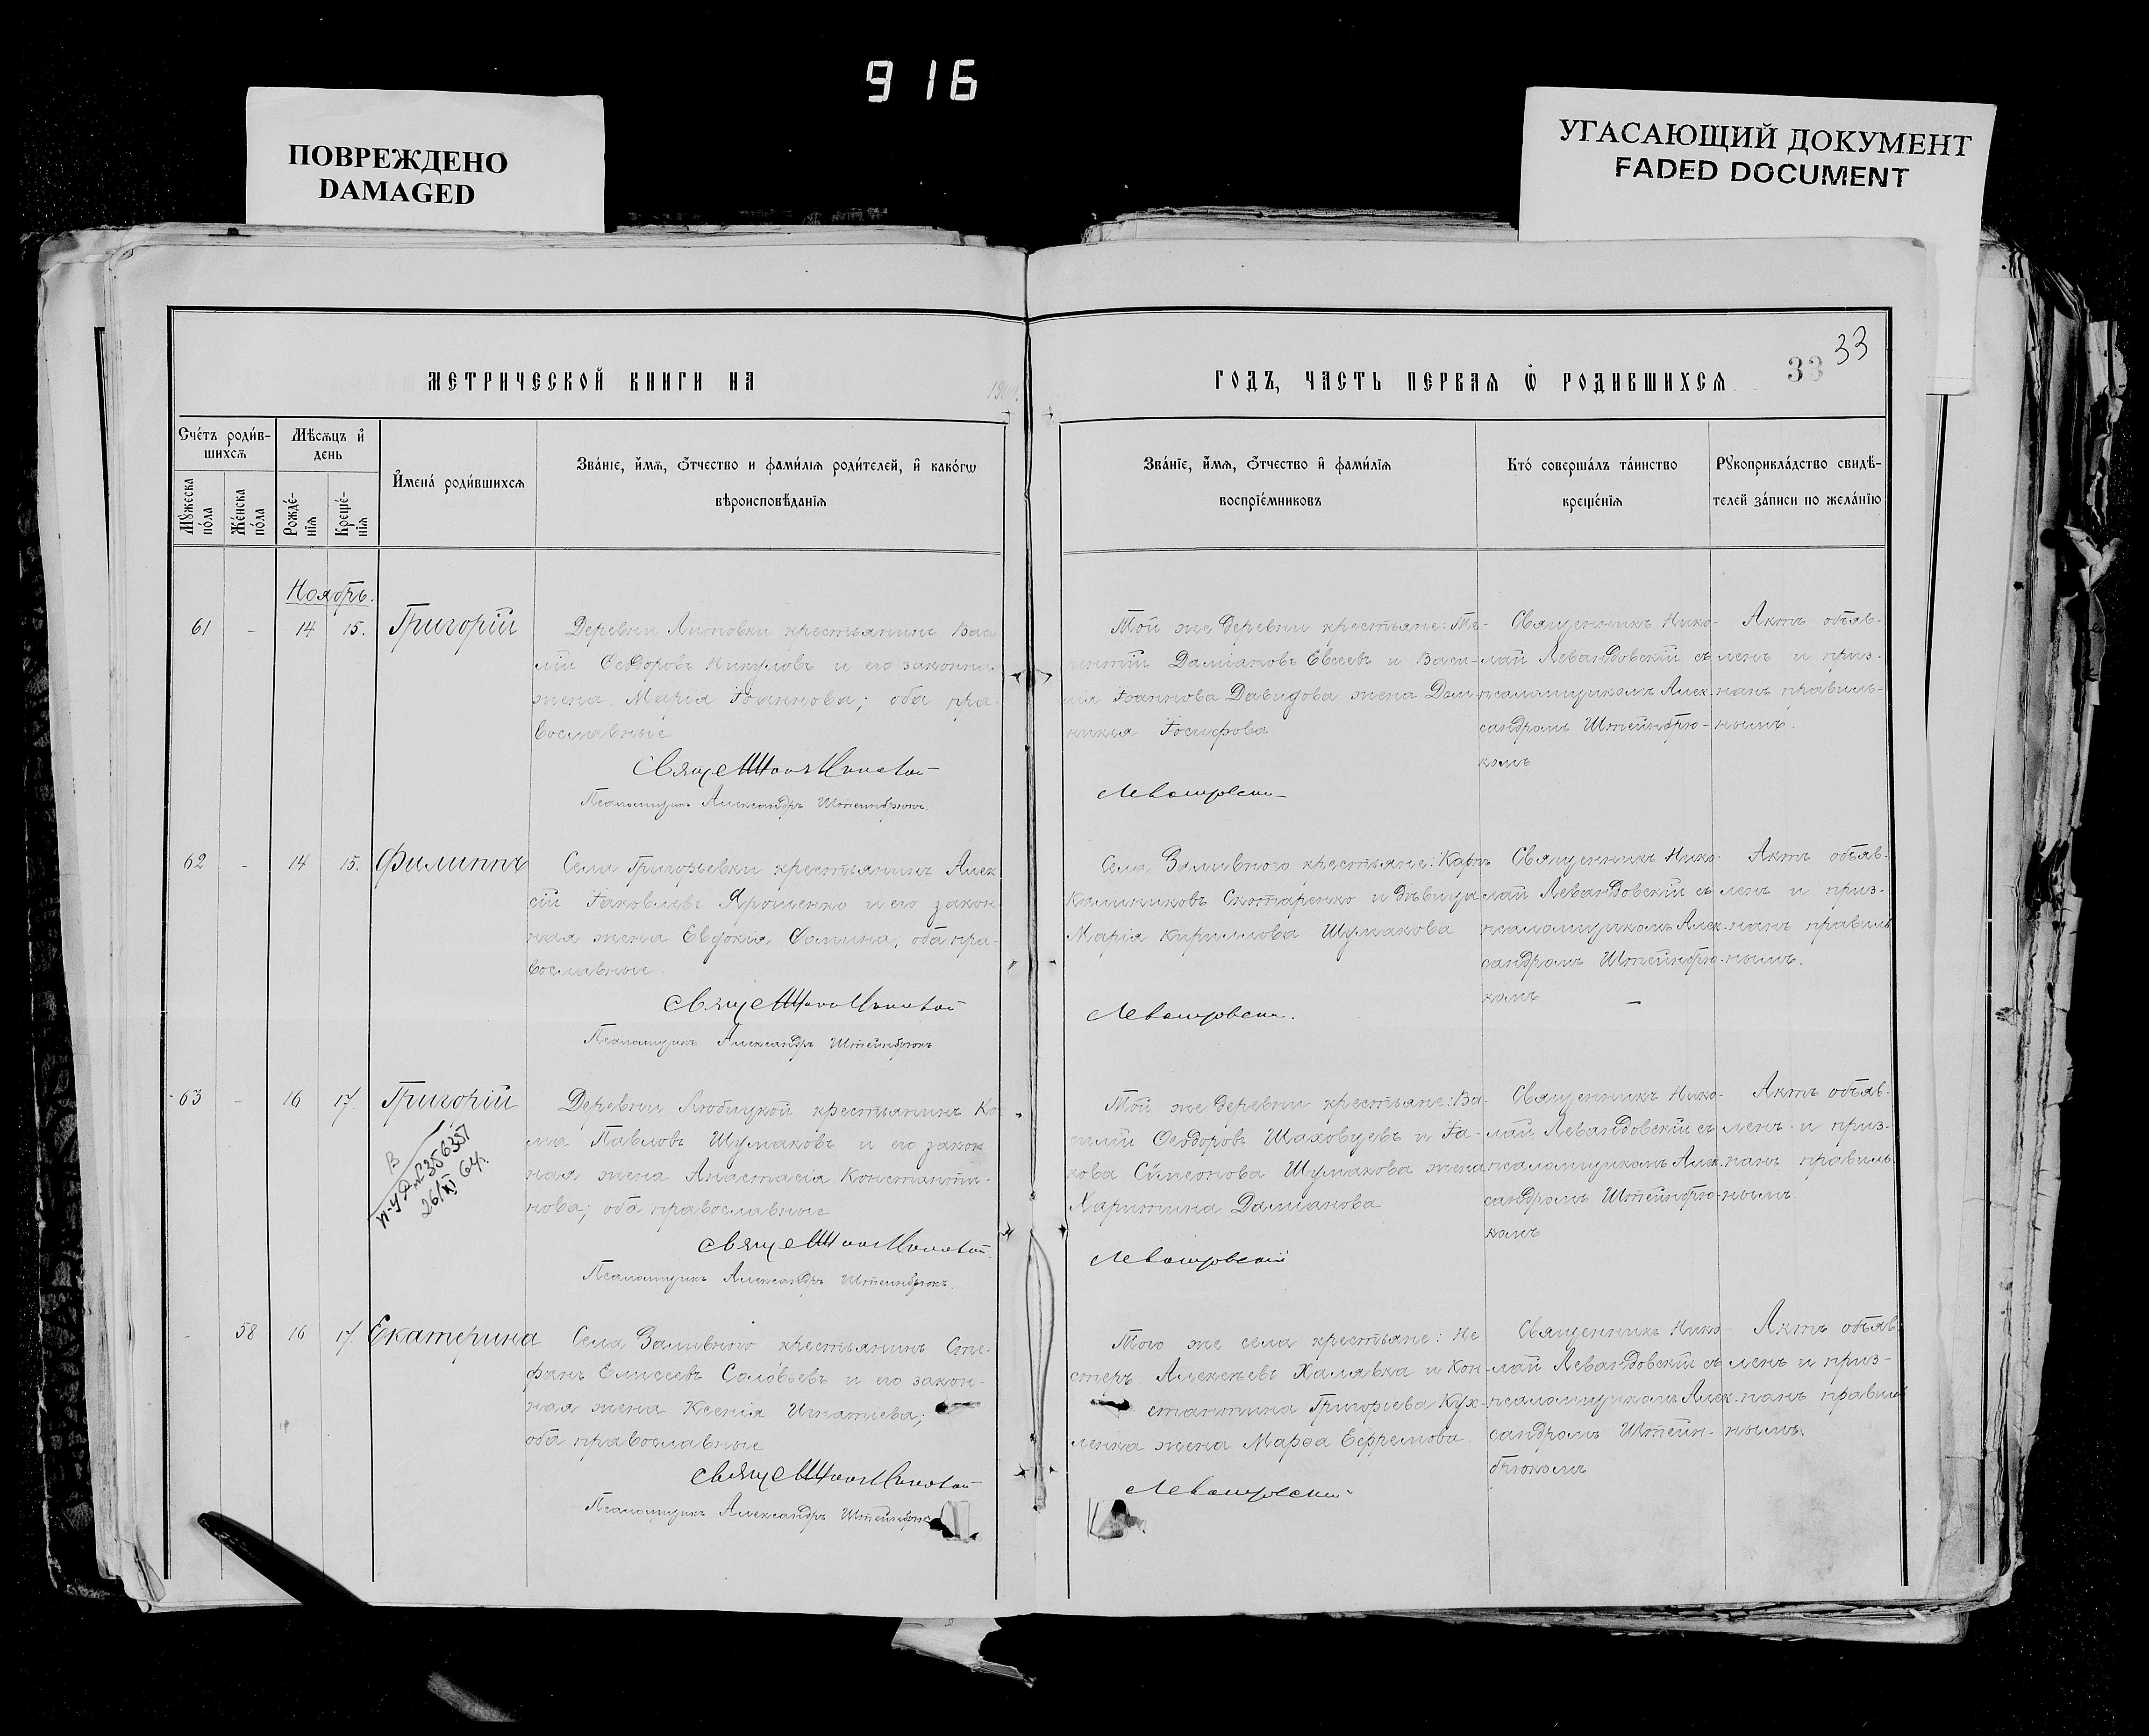 916
ПОВРЕЖДЕНО
DAMAGED
УГАСАЮЩИЙ ДОКУМЕНТ
FADED DOCUMENT
33
33
МЕТРИЧЕСКОЙ КНИГИ НА
ГОДЪ, ЧАСТЬ ПЕРВАѦ Ѡ РОДИВШИХСѦ
Сче́тъ роди́в-
шихсѧ
Мѣсѧцъ и҆
день
Мꙋ́жеска
по́ла
Же́нска
по́ла
Рожде́-
нїѧ
Креще́-
нїѧ
И҆мена̀ роди́вшихсѧ
Зва́нїе, и҆́мѧ, ѻ҆́тчество и фами́лїѧ роди́телей, и҆ како́гѡ
вѣроисповѣ́данїѧ
Зва́нїе, и҆́мѧ, ѻ҆́тчество и҆ фами́лїѧ
воспрїе́мниковъ
Кто̀ соверша́лъ та́инство
креще́нїѧ
Рꙋкоприкла́дство свидѣ́-
телей за́писи по жела́нїю
Ноябрь.
61 - 14 15. Григорій
Деревни Литовки крестьянинъ Васи
лій Ѳеодоровъ Никуловъ и его законная
жена Марія Іоаннова; оба пра-
вославные
Псаломщикъ Александръ Штейнбрюкъ.
Той же деревни крестьяне: Те-
рентій Даміановъ Евсеевъ и Васи-
лія Іоаннова Давидова жена Дом-
никія Іосифова
Левандовскій
Священникъ Нико-
лай Левандовскій съ
псаломщикомъ Алек-
сандромъ Штейнбрю-
комъ
Актъ объяв-
ленъ и приз-
нанъ правиль-
нымъ.
62 - 14 15. Филиппъ
Села Григорьевки крестьянинъ Алек
сій Іаковлевъ Ярошенко и его закон
ная жена Евдокія Ѳомина; оба пра-
вославные.
Псаломщикъ Александръ Штейнбрюкъ
Села Заливного крестьяне: Карпъ
Калиниковъ Скотаренко и дѣвица
Марія Кириллова Шумакова
Левандовскій.
Священникъ Нико-
лай Левандовскій съ
псаломщикомъ Алек-
сандромъ Штейнбрю-
комъ
Актъ объяв-
ленъ и приз-
нанъ правиль
нымъ.
63 - 16 17. Григорій
В
п-у я № 356357
26/XI 64г.
Деревни Любицкой крестьянинъ Ко
ма Павловъ Шумаковъ и его закон
ная жена Анастасія Константи-
нова; оба православные
Псаломщикъ Александръ Штейнбрюкъ.
Той же деревни крестьяне: Ва-
силій Ѳеодоровъ Шаховцевъ и Іа-
кова Сѵмеонова Шумакова жена
Харитина Даміанова
Левандовскій
Священникъ Нико-
лай Левандовскій съ
псаломщикомъ Алек-
сандромъ Штейнбрю-
комъ
Актъ объяв-
ленъ и приз-
нанъ правиль
нымъ.
- 58 16 17. Екатерина
Села Заливного крестьянинъ Сте-
фанъ Елисеевъ Соловьевъ и его закон-
ная жена Ксенія Игнатіева;
оба православные
Псаломщикъ Александръ Штейнбрюкъ
Того же села крестьяне: Не
стеръ Алексѣевъ Халявка и Кон-
стантина Григорьева Кух-
ленка жена Марѳа Ефремова.
Левандовскій
Священникъ Нико
лай Левандовскій съ
псаломщикомъ Алек-
сандромъ Штейн-
брюкомъ
Актъ объяв-
ленъ и приз-
нанъ правиль
нымъ.